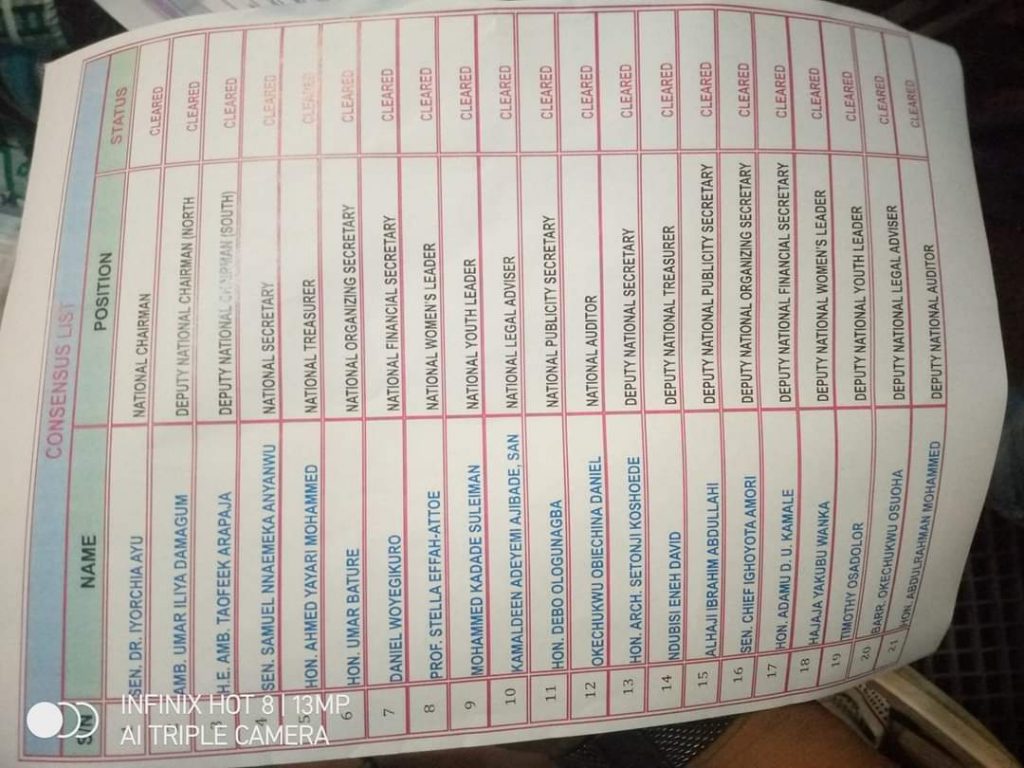 CONSENSUS LIST
S/N NAME POSITION STATUS
SEN. DR. IYORCHIA AYU NATIONAL CHAIRMAN CLEARED
AMB. UMAR ILIYA DAMAGUM DEPUTY NATIONAL CHAIRMAN (NORTH CLEARED
3 H.E. AMB. TAOFEEK ARAPAJA DEPUTY NATIONAL CHAIRMAN (SOUTH) CLEARED
4 SEN. SAMUEL NNAEMEKA ANYANWU NATIONAL SECRETARY CLEARED
5 HON. AHMED YAYARI MOHAMMED NATIONAL TREASURER CLEARED
6 HON. UMAR BATURE NATIONAL ORGANIZING SECRETARY CLEARED
7 DANIEL WOYEGIKURO NATIONAL FINANCIAL SECRETARY CLEARED
8 PROF. STELLA EFFAH-ATTOE NATIONAL WOMEN'S LEADER CLEARED
9 MOHAMMED KADADE SULEIMAN NATIONAL YOUTH LEADER CLEARED
10 KAMALDEEN ADEYEMI AJIBADE, SAN NATIONAL LEGAL ADVISER CLEARED
11 HON. DEBO OLOGUNAGBA NATIONAL PUBLICITY SECRETARY CLEARED
12 OKECHUKWU OBIECHINA DANIEL NATIONAL AUDITOR CLEARED
13 HON. ARCH. SETONJI KOSHOEDE DEPUTY NATIONAL SECRETARY CLEARED
14 NDUBISI ENEH DAVID DEPUTY NATIONAL TREASURER CLEARED
15 ALHAJI IBRAHIM ABDULLAHI DEPUTY NATIONAL PUBLICITY SECRETARY CLEARED
16 SEN. CHIEF IGHOYOTA AMORI DEPUTY NATIONAL ORGANIZING SECRETARY CLEARED
17 HON. ADAMU D. U. KAMALE DEPUTY NATIONAL FINANCIAL SECRETARY CLEARED
18 HAJAJA YAKUBU WANKA DEPUTY NATIONAL WOMEN'S LEADER CLEARED
19 TIMOTHY OSADOLOR DEPUTY NATIONAL YOUTH LEADER CLEARED
20 BARR. OKECHUKWU OSUOHA DEPUTY NATIONAL LEGAL ADVISER CLEARED
21 HON. ABDULRAHMAN MOHAMMED DEPUTY NATIONAL AUDITOR CLEARED
INFINIX HOT 8 | 13MP
AI TRIPLE CAMERA